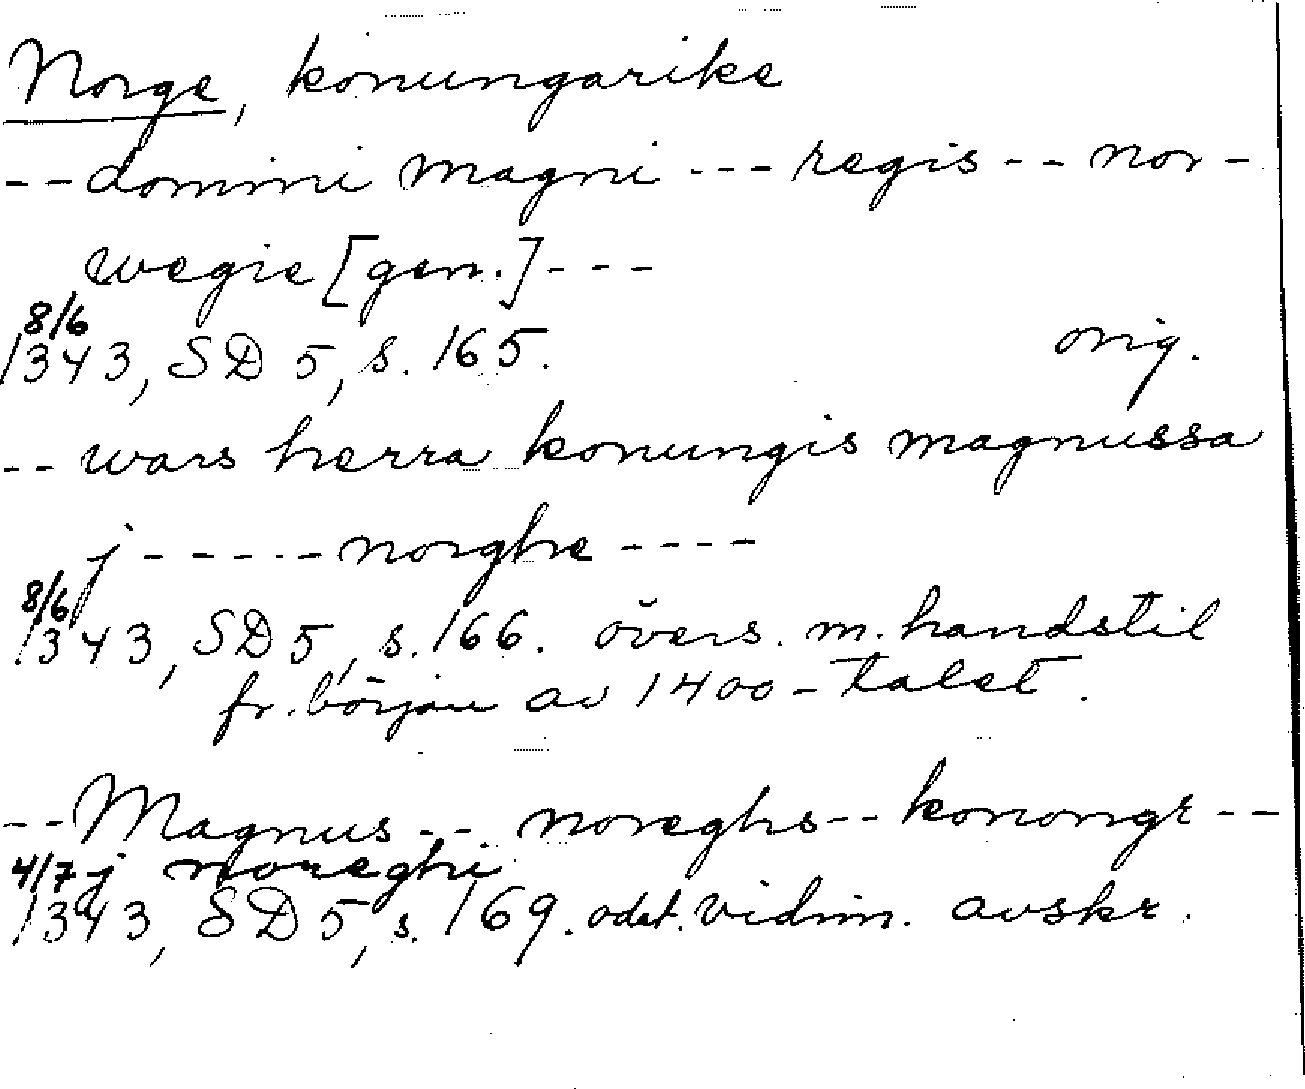 Norge, konungarike
--domini magni ---regis--nor-
wegie [gen.]---
8/6
1343, SD 5, s. 165. orig.
--wars herra konungis magnussa
j-----norghe----
8/6
1343, SD 5, s. 166. övers. m. handstil
fr. början av 1400-talet.
--Magnus-- noreghs--konongr--
4/7 j noreghi
1343, SD 5, s. 169. odat. vidim. avskr.